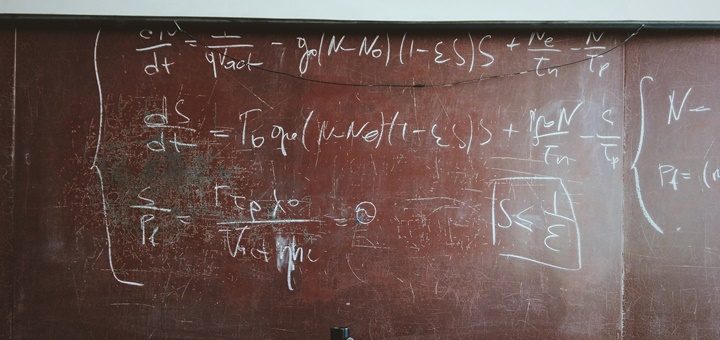 dN/dt = I/qVact - g₀(N-N₀)(1-εS)S + Ne/τn - N/τp
dS/dt = Γ₀g₀(N-N₀)(1-εS)S + N/τn - S/τp
S/Pf = Γτpλ₀/Vactηhc = ϑ
S ≤ 1/ε
N =
Pf = (